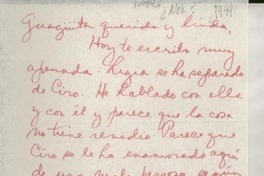 ¿Nov.? 1949
Guagüita querida y linda,
Hoy te escribo muy
apenada: Ligia se ha separado
de Ciro. He hablado con ella
y con él y parece que la cosa
no tiene remedio. Parece que
Ciro se le ha enamorado aquí
de una